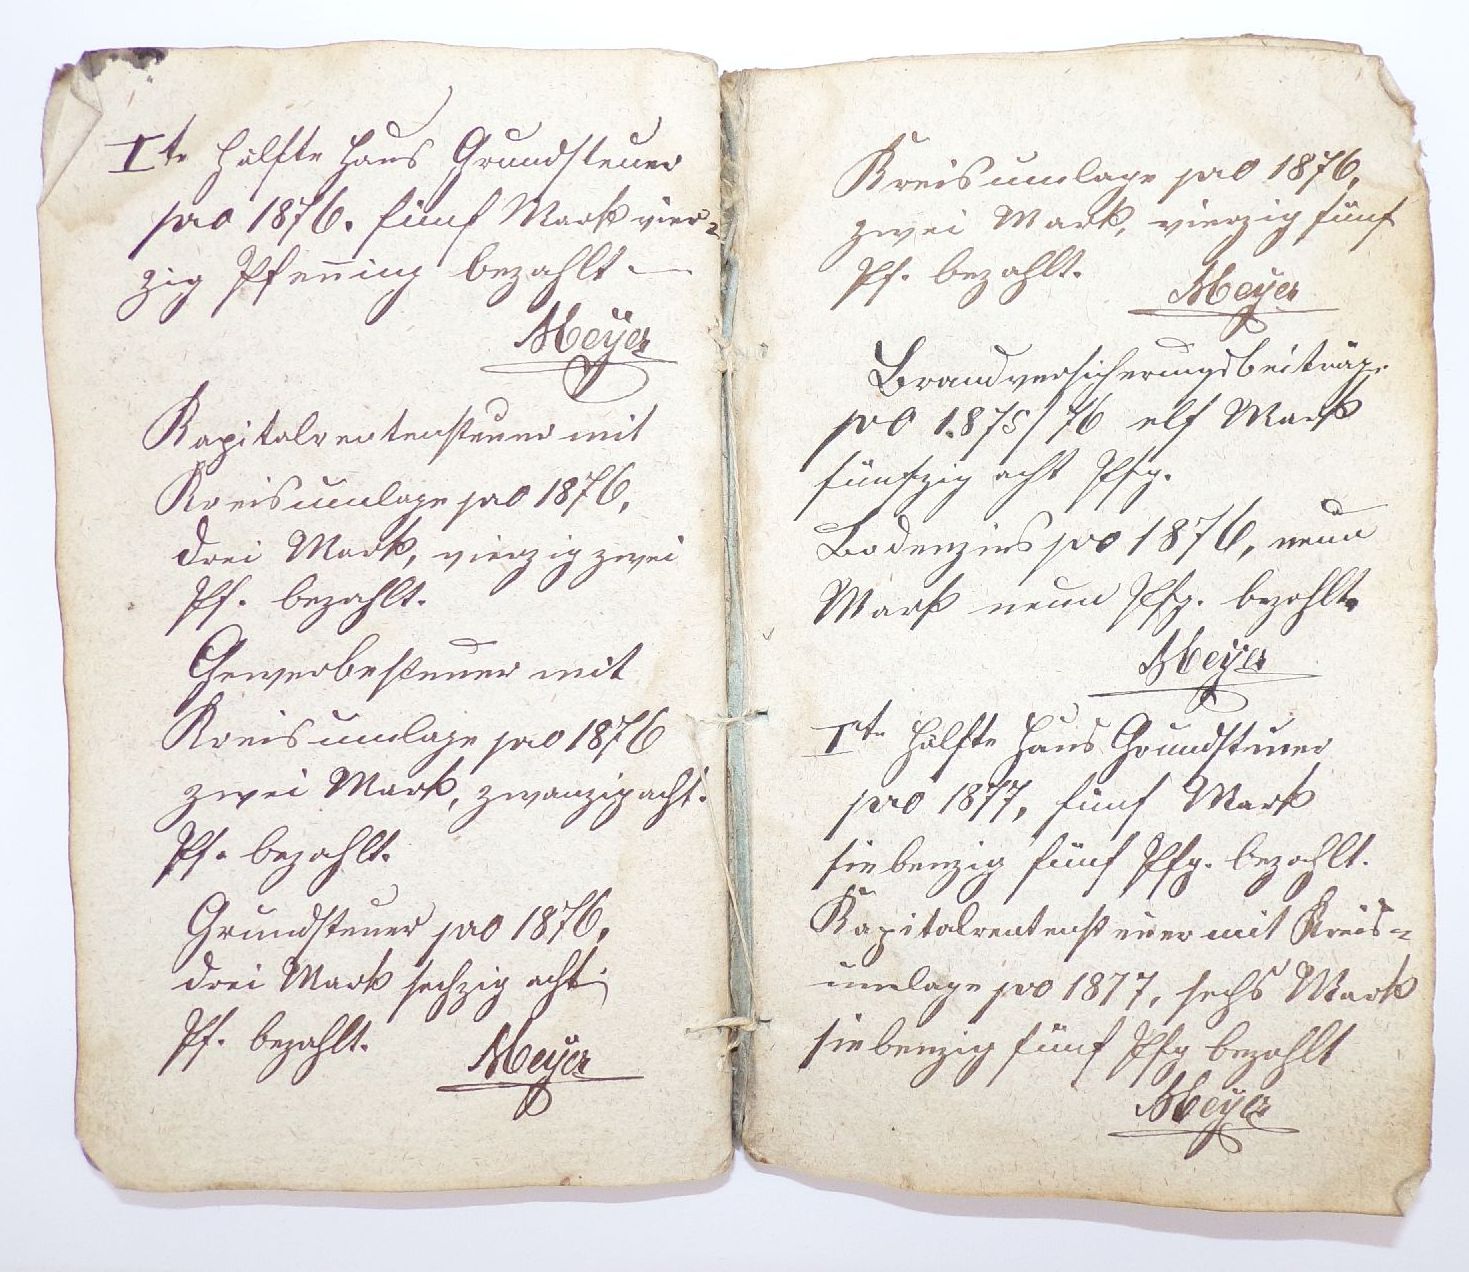 Ite Hälfte Haus Grundsteuer
pro 1876. fünf Mark vier=
zig Pfennig bezahlt —
Meÿer
Kapitalrentensteuer mit
Kreisumlage pro 1876,
drei Mark, vierzig zwei
Pf. bezahlt.
Gewerbesteuer mit
Kreisumlage pro 1876
zwei Mark, zwanzig acht
Pf. bezahlt.
Grundsteuer pro 1876,
drei Mark sechzig acht
Pf. bezahlt.
Meÿer
Kreisumlage pro 1876,
zwei Mark, vierzig fünf
Pf. bezahlt.
Meÿer
Brandversicherungsbeiträge
pro 1875/76 elf Mark
fünfzig acht Pfg.
Bodenzins pro 1876, neun
Mark neun Pfg. bezahlt.
Meÿer
Ite Hälfte Haus Grundsteuer
pro 1877, fünf Mark
siebenzig fünf Pfg. bezahlt.
Kapitalrentensteuer mit Kreis=
umlage pro 1877, sechs Mark
siebenzig fünf Pfg bezahlt
Meÿer